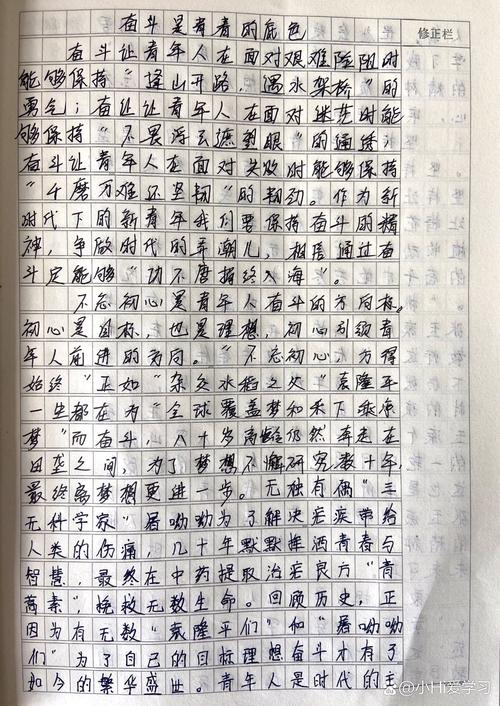 奋斗是青春的底色
修正栏
奋斗让青年人在面对艰难险阻时
能够保持“逢山开路，遇水架桥”的
勇气；奋让让青年人在面对迷茫时能
够保持“不畏浮云遮望眼”的通透；
奋斗让青年人在面对失败时能够保持
“千磨万难还坚韧”的韧劲。作为新
时代下的新青年我们要保持奋斗的精
神，争做时代的弄潮儿，相信通过奋
斗定能够“功不唐捐终入海”。
不忘初心是青年人奋斗的方向标。
初心是目标，也是理想，初心引领青
年人前进的方向。“不忘初心，方得
始终”正如“杂交水稻之父”袁隆平
一生都在为“全球覆盖梦和禾下乘凉
梦”而奋斗，八十岁高龄仍然奔走在
田垄之间，为了梦想不懈研究数十年，
最终离梦想更进一步。无独有偶“三
无科学家”屠呦呦为了解决疟疾带给
人类的伤痛，几十年默默挥洒青春与
智慧，最终在中药提取治疟良方“青
蒿素”，挽救无数生命。回顾历史，正
因为有无数“袁隆平们”和“屠呦呦
们”为了自己的目标理想奋斗才有了
如今的繁华盛世。青年人是时代的主
@小Hi爱学习